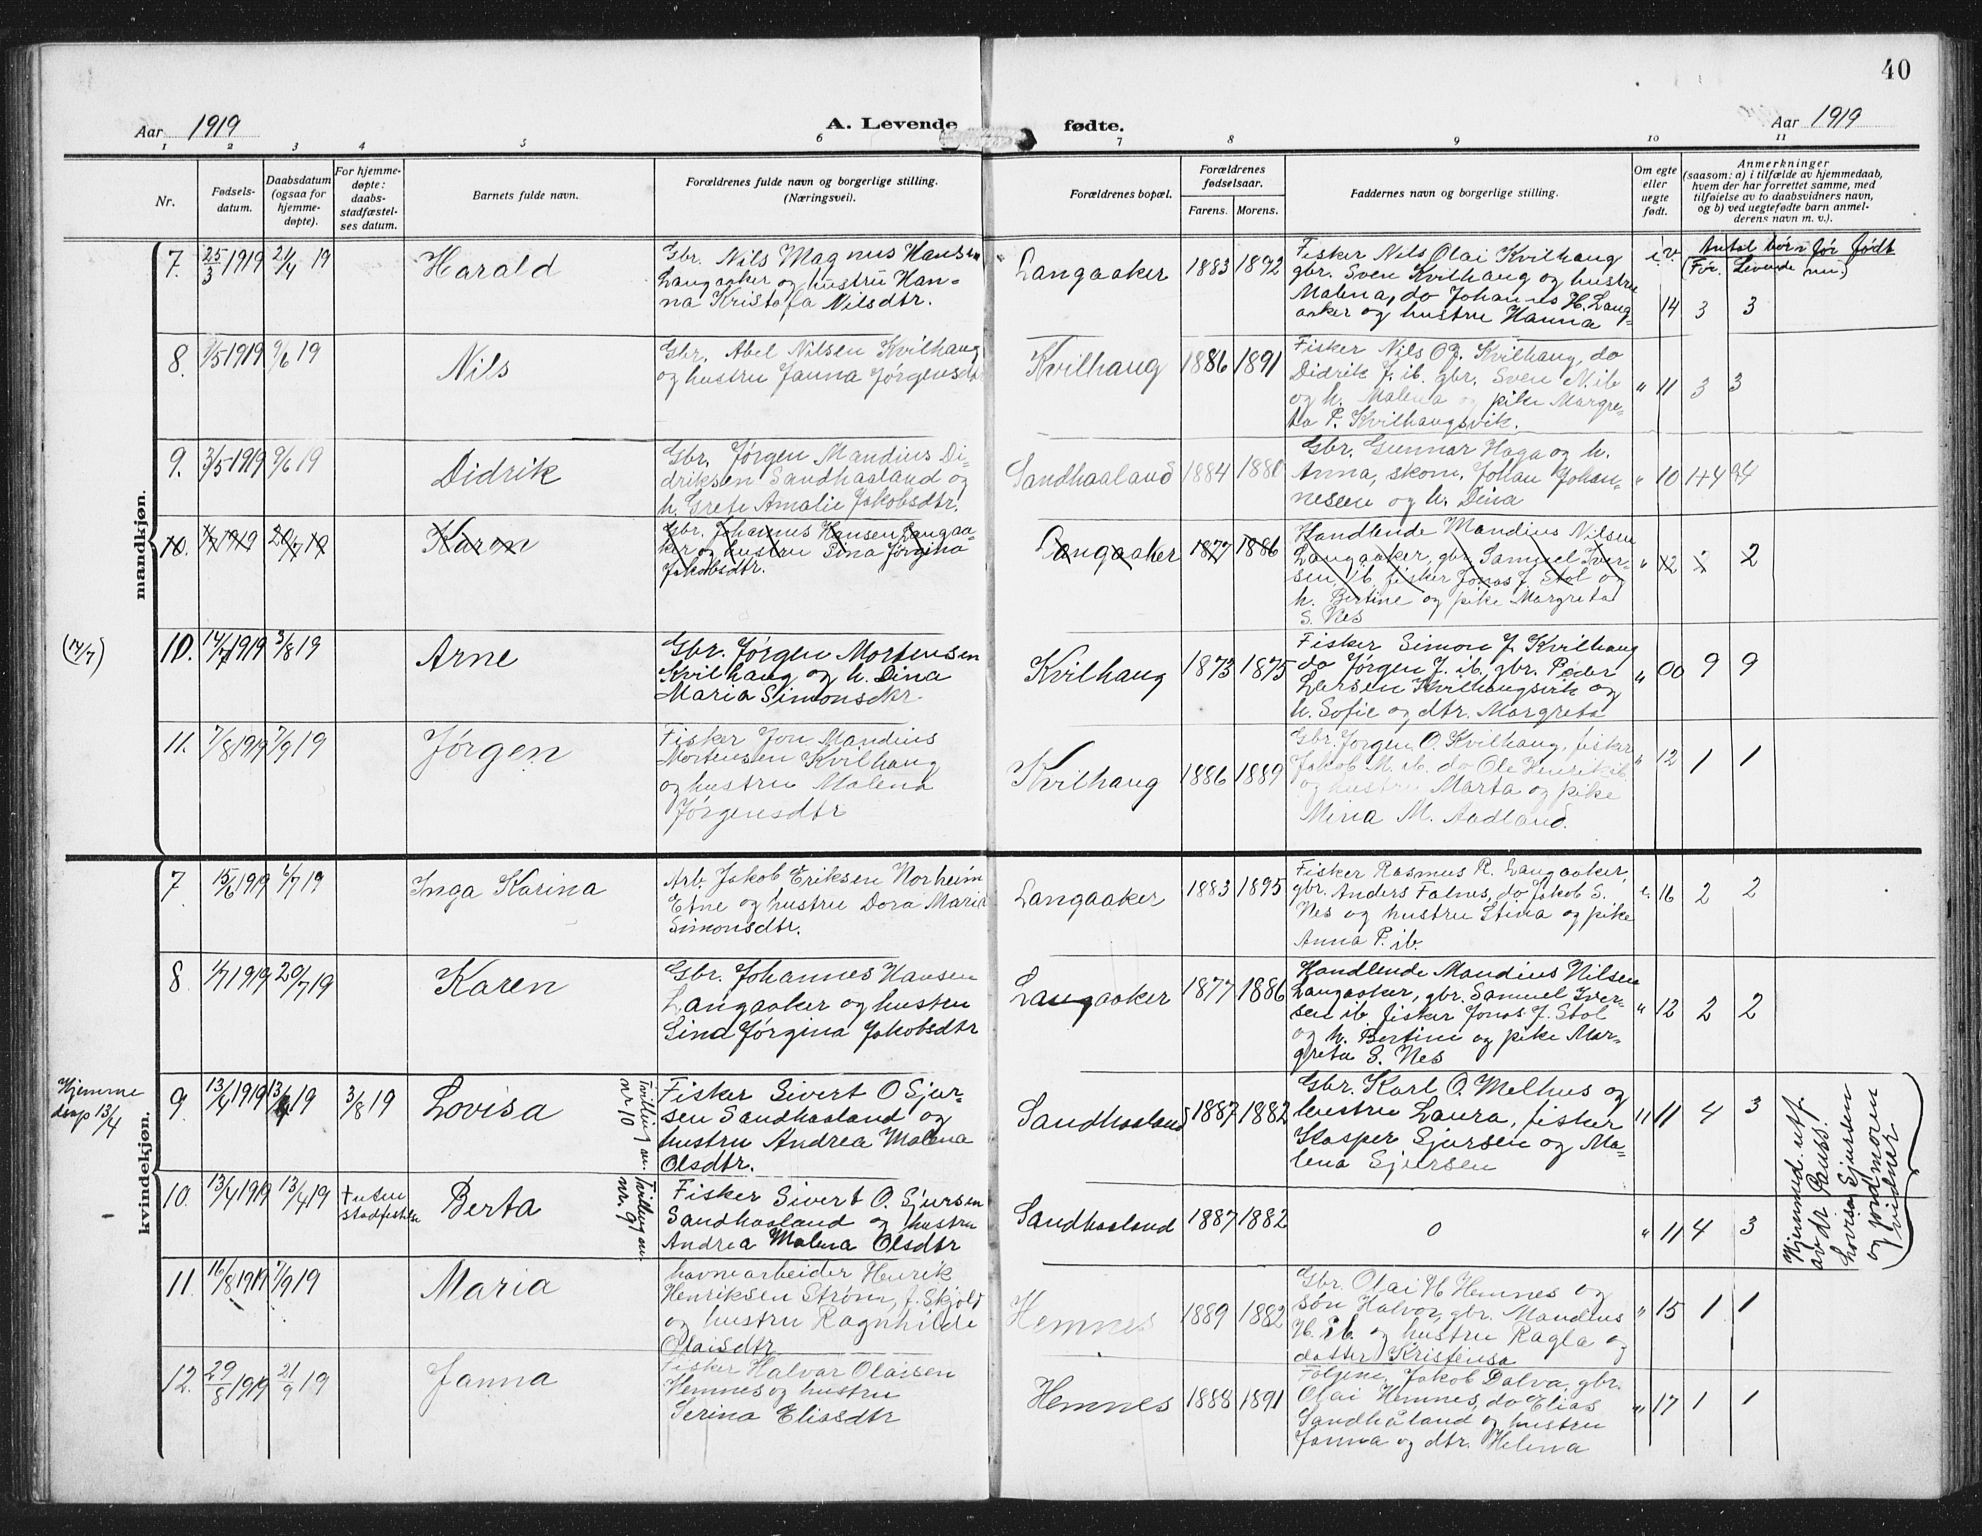 40
Aar 1919 A. Levende fødte. Aar 1919
1 2 3 4 5 6 7 8 9 10 11
Nr.
Fødsels-
datum.
Daabsdatum
(ogsaa for
hjemme-
døpte).
For hjemme-
døpte:
daabs-
stadfæstel-
ses datum.
Barnets fulde navn.
Forældrenes fulde navn og borgerlige stilling.
(Næringsvei).
Forældrenes bopæl.
Forældrenes
fødselsaar.
Farens. Morens.
Faddernes navn og borgerlige stilling.
Om egte
eller
uegte
født.
Anmerkninger
(saasom: a) i tilfælde av hjemmedaab,
hvem der har forrettet samme, med
tilføielse av to daabsvidners navn,
og b) ved uegtefødte barn anmel-
derens navn m. v.).
Antal børn før født
(Før. Levende nu)
mandkjøn.
7. 25/3 1919 21/4 19 Harald
Gbr. Nils Magnus Hansen
Langaaker og hustru Han-
na Kristofa Nilsdtr.
Langaaker 1883 1892
Fisker Nils Olai Kvilhaug
gbr. Sven Kvilhaug og hustru
Malena, do Johannes H. Lang-
aaker og hustru Hanna
14 3 3
8. 1/5 1919 9/6 19 Nils
Gbr. Abel Nilsen Kvilhaug
og hustru Janna Jørgensdtr
Kvilhaug 1886 1891
Fisker Nils O. Kvilhaug, do
Didrik J. ib. gbr. Sven N. ib
og h. Malena og pike Margre-
ta P. Kvilhaugsvik.
" 11 3 3
9. 3/5 1919 9/6 19 Didrik
Gbr. Jørgen Mandius Di-
driksen Sandhaaland og
h. Grete Amalie Jakobsdtr.
Sandhaaland 1884 1880
Gbr. Gunnar Haga og h.
Anna, skom. Johan Johan-
nesen og h. Dina
" 10 1+4
10. 1/7 1919 20/7 19 Karen
Gbr. Johannes Hansen Langaa-
ker og hustru Sina Jørgina
Jakobsdtr.
Langaaker 1877 1886
Handlende Mandius Nilsen
Langaaker, gbr. Samuel Iver-
sen ib. fisker Jonas J. Stol og
h. Bertine og pike Margreta
S. Nes
" 12 2 2
(14/7)
10. 14/7 1919 3/8 19 Arne
Gbr. Jørgen Mortensen
Kvilhaug og h. Dina
Maria Simonsdtr.
Kvilhaug 1873 1875
Fisker Simon J. Kvilhaug
do Jørgen J. ib. gbr. Peder
Larsen Kvilhaugsvik og
h. Sofie og dtr. Margreta
" 00 9 9
11. 7/8 1919 7/9 19 Jørgen
Fisker Jon Mandius
Mortensen Kvilhaug
og hustru Malena
Jørgensdtr
Kvilhaug 1886 1889
Gbr. Jørgen O. Kvilhaug, fisker
Jakob M. ib. do Ole Henrik ib.
og hustru Marta og pike
Mina M. Aadland.
" 12 1 1
kvindekjøn.
7 15/6 1919 6/7 19 Inga Karina
Arb. Jakob Eriksen Norheim
Etne og hustru Dora Maria
Simonsdtr.
Langaaker 1883 1895
Fisker Rasmus R. Langaaker,
gbr. Anders Falnes, do Jakob S.
Nes og hustru Stina og pike
Anna P. ib.
16 2 2
8 1/7 1919 20/7 19 Karen
Gbr. Johannes Hansen
Langaaker og hustru
Sina Jørgina Jakobsdtr
Langaaker 1877 1886
Handlende Mandius Nilsen
Langaaker, gbr. Samuel Iver-
sen ib fisker Jonas J. Stol
og h. Bertine og pike Mar-
greta S. Nes
" 12 2 2
Hjemme
daap 13/4
9 13/4 1919 13/4 19 3/8 19 Lovisa
Tvilling av
nr 10
Fisker Sivert O Sjur-
sen Sandhaaland og
hustru Andrea Malena
Olsdtr.
Sandhaaland 1887 1882
Gbr. Karl O. Melhus og
hustru Laura, fisker
Kasper Sjursen og Ma-
lena Sjursen
" 11 4 3
Hjemmed. utf.
av dr. Pauss.
Lovisa Sjursen
og jordmoren
vidner
10. 13/4 1919 13/4 19 Berta
Tvilling av
nr. 9
Fisker Sivert O. Sjursen
Sandhaaland og hustru
Andrea Malena Olsdtr
Sandhaaland 1887 1882
0
" 11 4 3
11 16/8 1919 7/9 19 Maria
havnearbeider Henrik
Henriksen Strøm, f. Skjold
og hustru Ragnhilde
Olaisdtr
Hemnes 1889 1882
Gbr. Olai H Hemnes og
søn Halvor, gbr. Mandius
H. ib. og hustru Ragla og
datter Kristensa
" 15 1 1
12. 29/8 1919 21/9 19 Janna
Fisker Halvar Olaisen
Hemnes og hustru
Serina Eliasdtr
Hemnes 1888 1891
Jakob Dalva, gbr.
Olai Hemnes, do Elias
Sandhåland og hustru
Janna og dtr. Helena
" 17 1 1